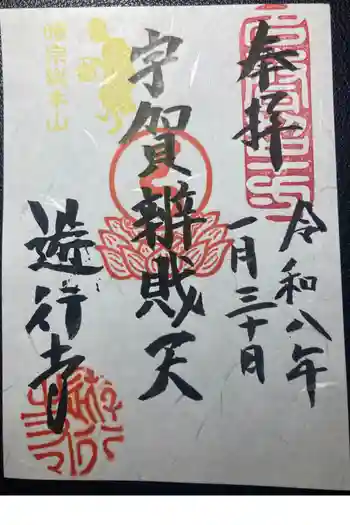 奉拝
令和八年
一月三十日
宇賀辨財天
遊行寺
時宗総本山